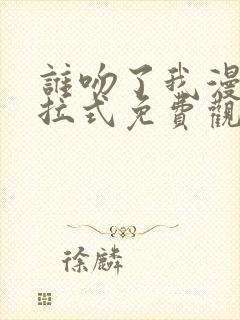 誰吻了我漫
拉式免費觀
徐麟